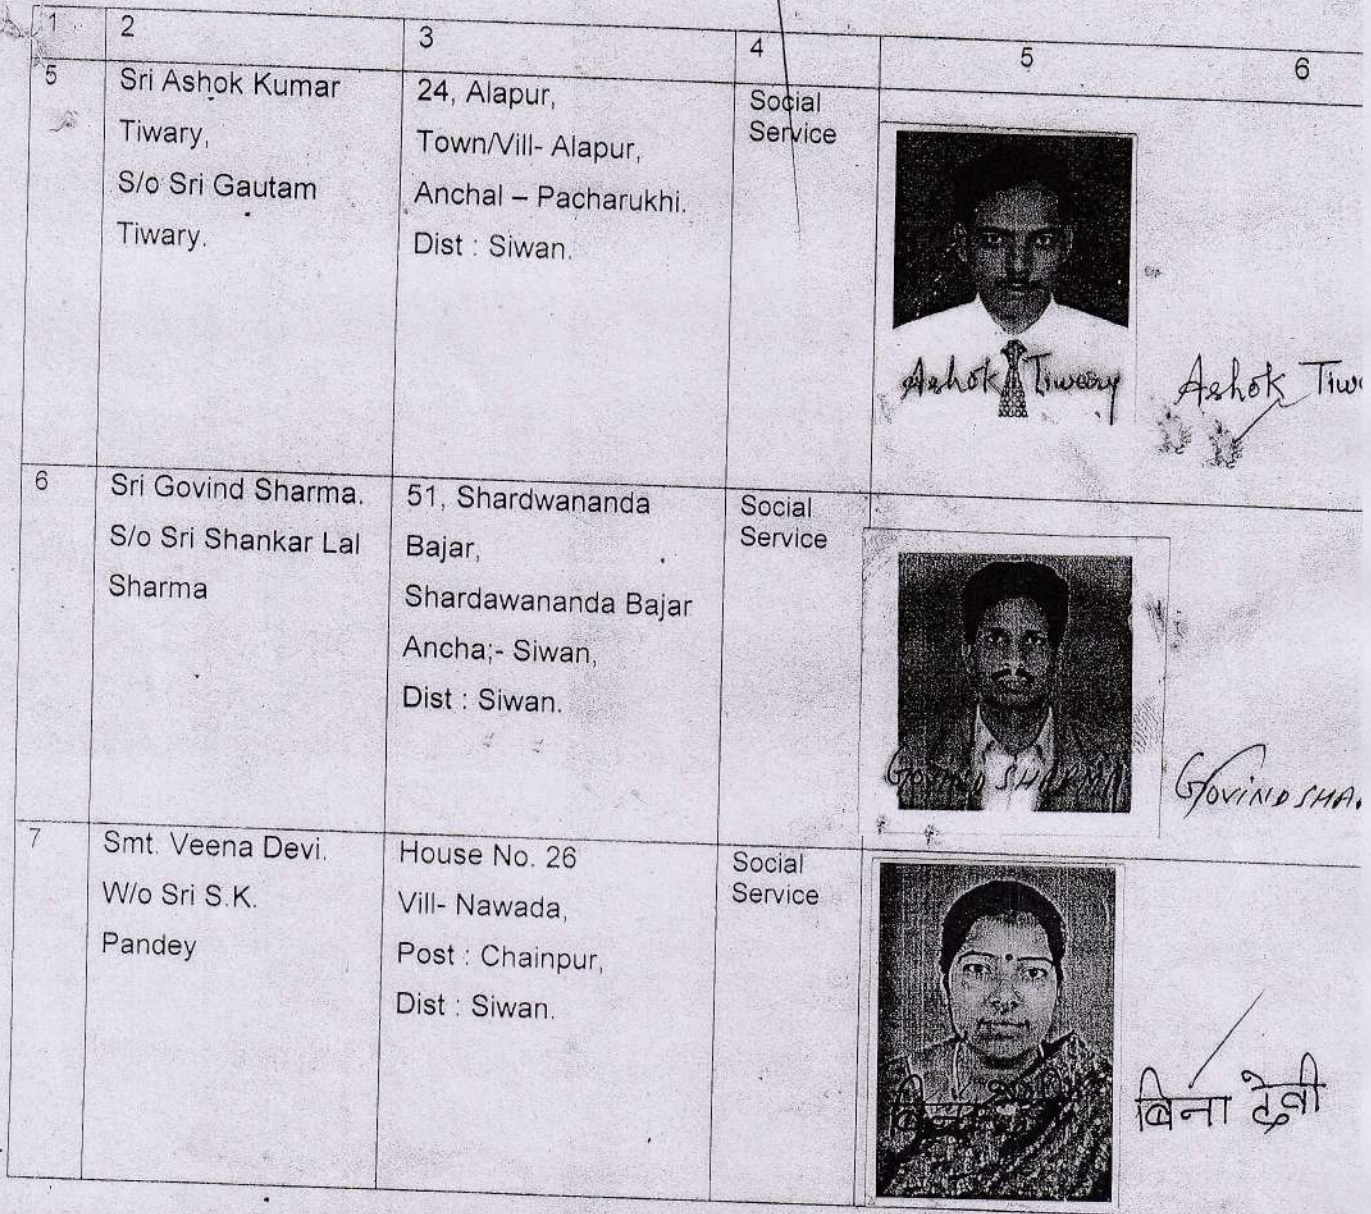 1 2 3 4 5 6
5
Sri Ashok Kumar
Tiwary,
S/o Sri Gautam
Tiwary.
24, Alapur,
Town/Vill- Alapur,
Anchal – Pacharukhi.
Dist : Siwan.
Social
Service
Ashok Tiwary
Ashok Tiw
6
Sri Govind Sharma.
S/o Sri Shankar Lal
Sharma
51, Shardwananda
Bajar,
Shardawananda Bajar
Ancha;- Siwan,
Dist : Siwan.
Social
Service
GOVIND SHARMA
GOVIND SHA
7
Smt. Veena Devi.
W/o Sri S.K.
Pandey
House No. 26
Vill- Nawada,
Post : Chainpur,
Dist : Siwan.
Social
Service
बिना देवी